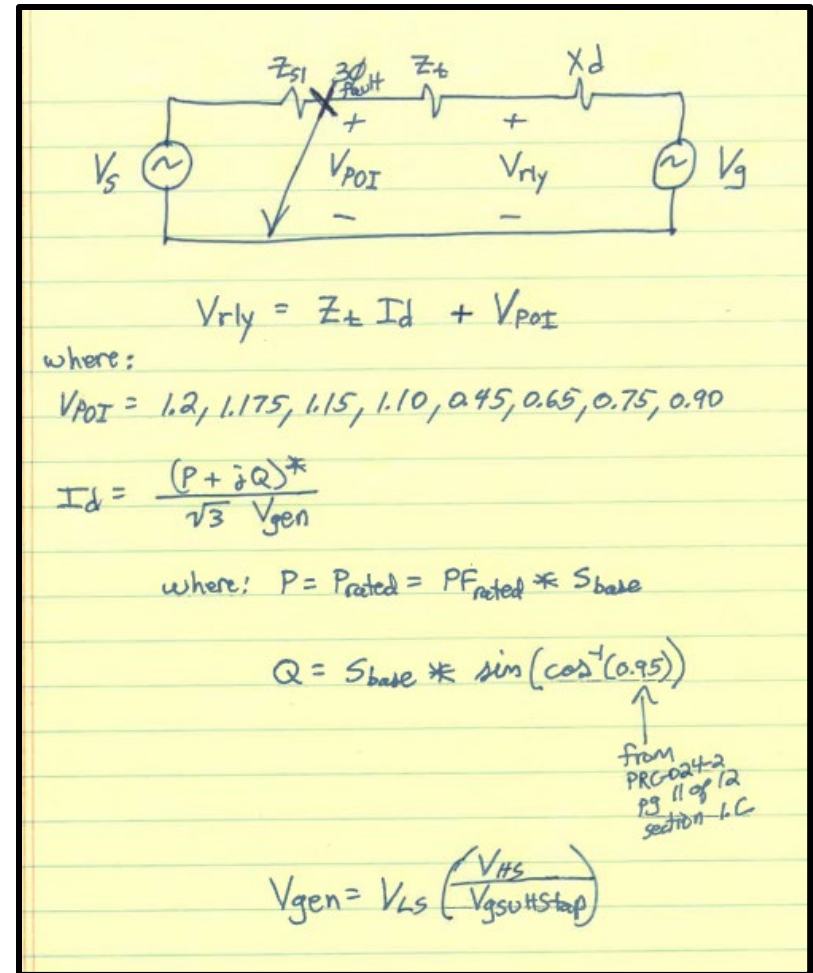 Zs1 3Ø fault Zt Xd
+ +
Vs VPOI Vrly Vg
− −
Vrly = Zt Id + VPOI
where:
VPOI = 1.2, 1.175, 1.15, 1.10, 0.45, 0.65, 0.75, 0.90
Id = (P + jQ)* / √3 Vgen
where: P = Prated = PFrated * Sbase
Q = Sbase * sin(cos⁻¹(0.95))
from
PRC-024-2
pg 11 of 12
section 1.C
Vgen = VLS (VHS / VgsuHStap)